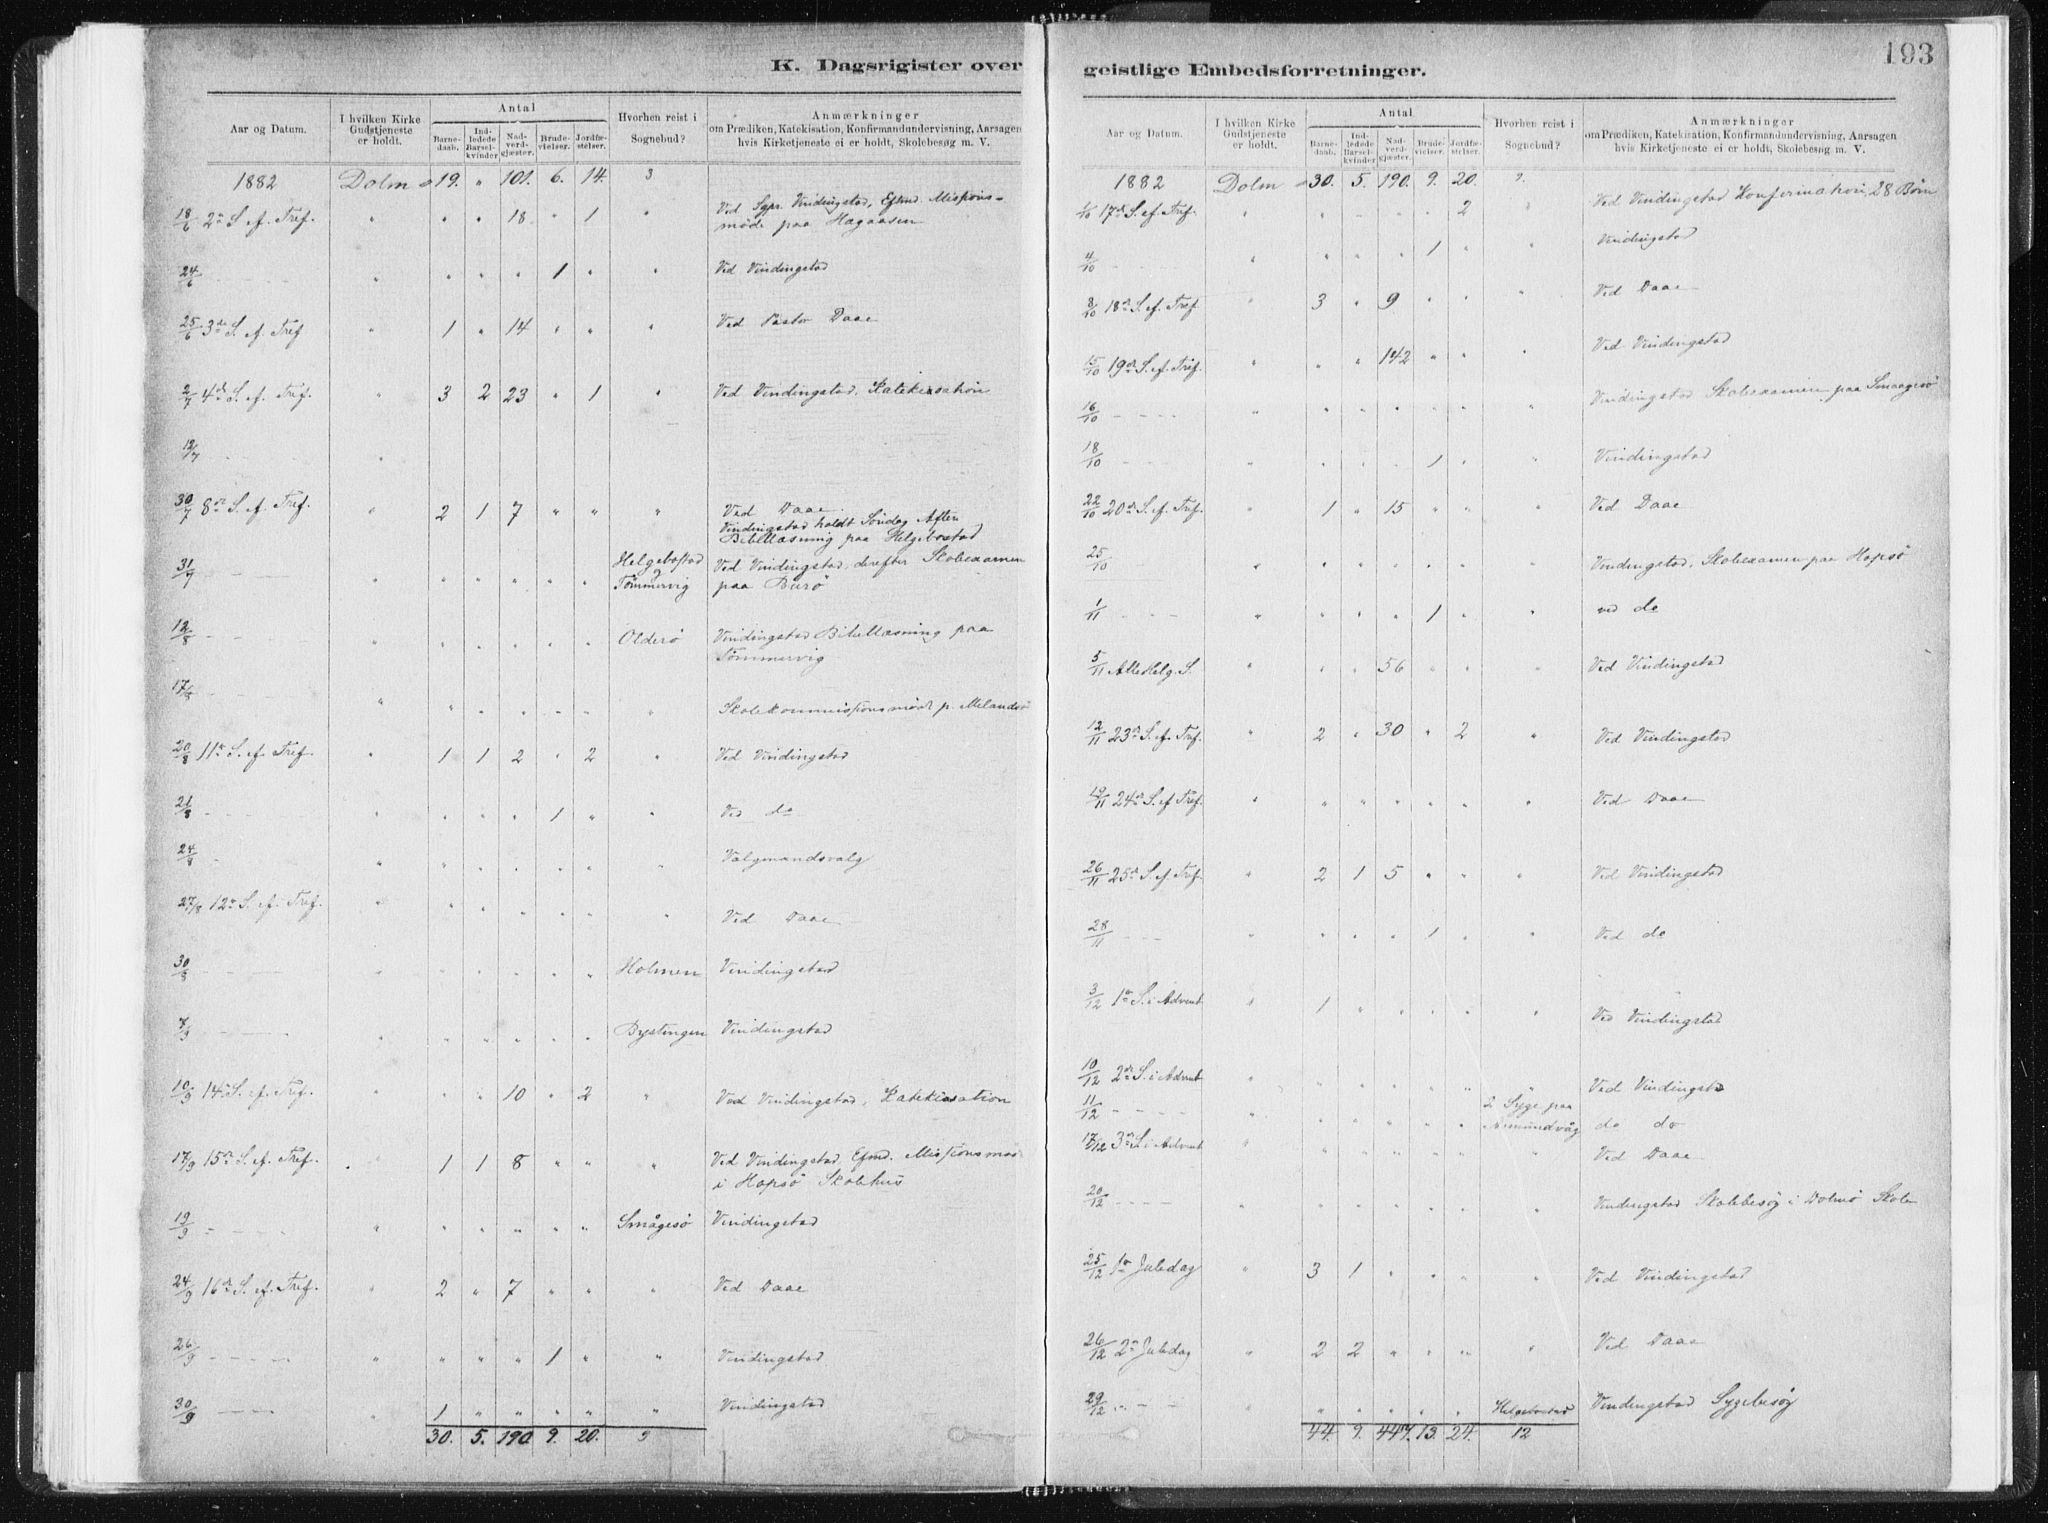 193
K. Dagsrigister over
Aar og Datum. | I hvilken Kirke Gudstjeneste er holdt. | Antal: Barnedaab. | Indledede Barselkvinder | Nadverdgjæster. | Brudevielser. | Jordfæstelser. | Hvorhen reist i Sognebud? | Anmærkninger om Prædiken, Katekisation, Konfirmandundervisning, Aarsagen hvis Kirketjeneste ei er holdt, Skolebesøg m. V.
1882 Dolm 19. " 101. 6. 14. 3
18/6 2n S. ef. Tref. " " " 18 " 1 " Ved Sgpr. Vindingstad, Efmd. Missions-
møde paa Hagaasen
24/6 " " " " 1 " " Ved Vindingstad
25/6 3de S. ef. Tref " 1 " 14 " " " Ved Pastor Daae
2/7 4de S. ef. Tref. " 3 2 23 " 1 " Ved Vindingstad. Katekisation
12/7 "
30/7 8de S. ef. Tref. " 2 1 7 " " " Ved Daae.
Vindingstad holdt Søndag Aften
Bibellæsning paa Helgebostad
31/7 " " " " " Helgebostad Ved Vindingstad, derefter Skolexamen
Tömmervig paa Burö
12/8 " " " " " " Olderö Vindingstad Bibellæsning paa
Tömmervig
17/8 " " " " " " " Skolekommissionsmöde p. Melandsö
20/8 11te S. ef. Tref. " 1 1 2 " 2 " Ved Vindingstad
21/8 " " " " 1 " " Ved do
24/8 " " " " " " " Valgmandsvalg
27/8 12te S. ef. Tref. " " " " " " " Ved Daae
30/8 " " " " " " Holmen Vindingstad
7/9 " " " " " " Bystingen Vindingstad
10/9 14de S. ef. Tref. " " " 10 " 2 " Ved Vindingstad, Katekisation
17/9 15de S. ef. Tref. " 1 1 8 " " " Ved Vindingstad. Efmd. Missionsmøde
i Hopsö Skolehus
19/9 " " " " " " Smågesø Vindingstad
24/9 16de S. ef. Tref. " 2 " 7 " " " Ved Daae
26/9 " " " " 1 " " Vindingstad
30/9 " 1 " " " " " Vindingstad
30. 5. 190. 9. 20. 9
geistlige Embedsforretninger.
Aar og Datum. | I hvilken Kirke Gudstjeneste er holdt. | Antal: Barnedaab. | Indledede Barselkvinder | Nadverdgjæster. | Brudevielser. | Jordfæstelser. | Hvorhen reist i Sognebud? | Anmærkninger om Prædiken, Katekisation, Konfirmandundervisning, Aarsagen hvis Kirketjeneste ei er holdt, Skolebesøg m. V.
1882 Dolm 30. 5. 190. 9. 20. 9.
1/10 17de S. ef. Tref. " " " " " 2 Ved Vindingstad Konfirmation, 28 Børn
4/10 " " " " 1 " " Vindingstad
8/10 18de S. ef. Tref " 3 " 9 " " " Ved Daae
15/10 19de S. ef. Tref. " " " 142 " " " Ved Vindingstad
16/10 " " " " " " " Vindingstad Skolexamen paa Smaagesø
18/10 " " " " 1 " " Vindingstad
22/10 20de S. ef. Tref. " 1 " 15 " " " Ved Daae
25/10 " " " " " " " Vindingstad. Skolexamen paa Hopsö
1/11 " " " " 1 " " ved do
5/11 Alle Helg. S. " " " 56 " " " Ved Vindingstad
12/11 23de S. ef. Tref. " 2 " 30 " 2 " Ved Vindingstad
19/11 24de S. ef Tref. " " " " " " Ved Daae
26/11 25de S. ef Tref. " 2 1 5 " " " Ved Vindingstad
28/11 " " " " 1 " " Ved do
3/12 1ste S. i Advent " 1 " " " " " Ved Vindingstad
10/12 2den S. i Advent " " " " " " " Ved Vindingstad
11/12 " " " " " " 2 Syge paa
Asmundvåg do do
17/12 3die S. i Advent " " " " " " " Ved Daae
20/12 " " " " " " " Vindingstad Skolebesøg i Dolmö Skole
25/12 1ste Juledag " 3 1 " " " " Ved Vindingstad
26/12 2n Juledag " 2 2 " " " " Ved Daae
29/12 " " " " " " Helgebostad Vindingstad Sygebesøg
44. 9. 447. 13. 24. 12